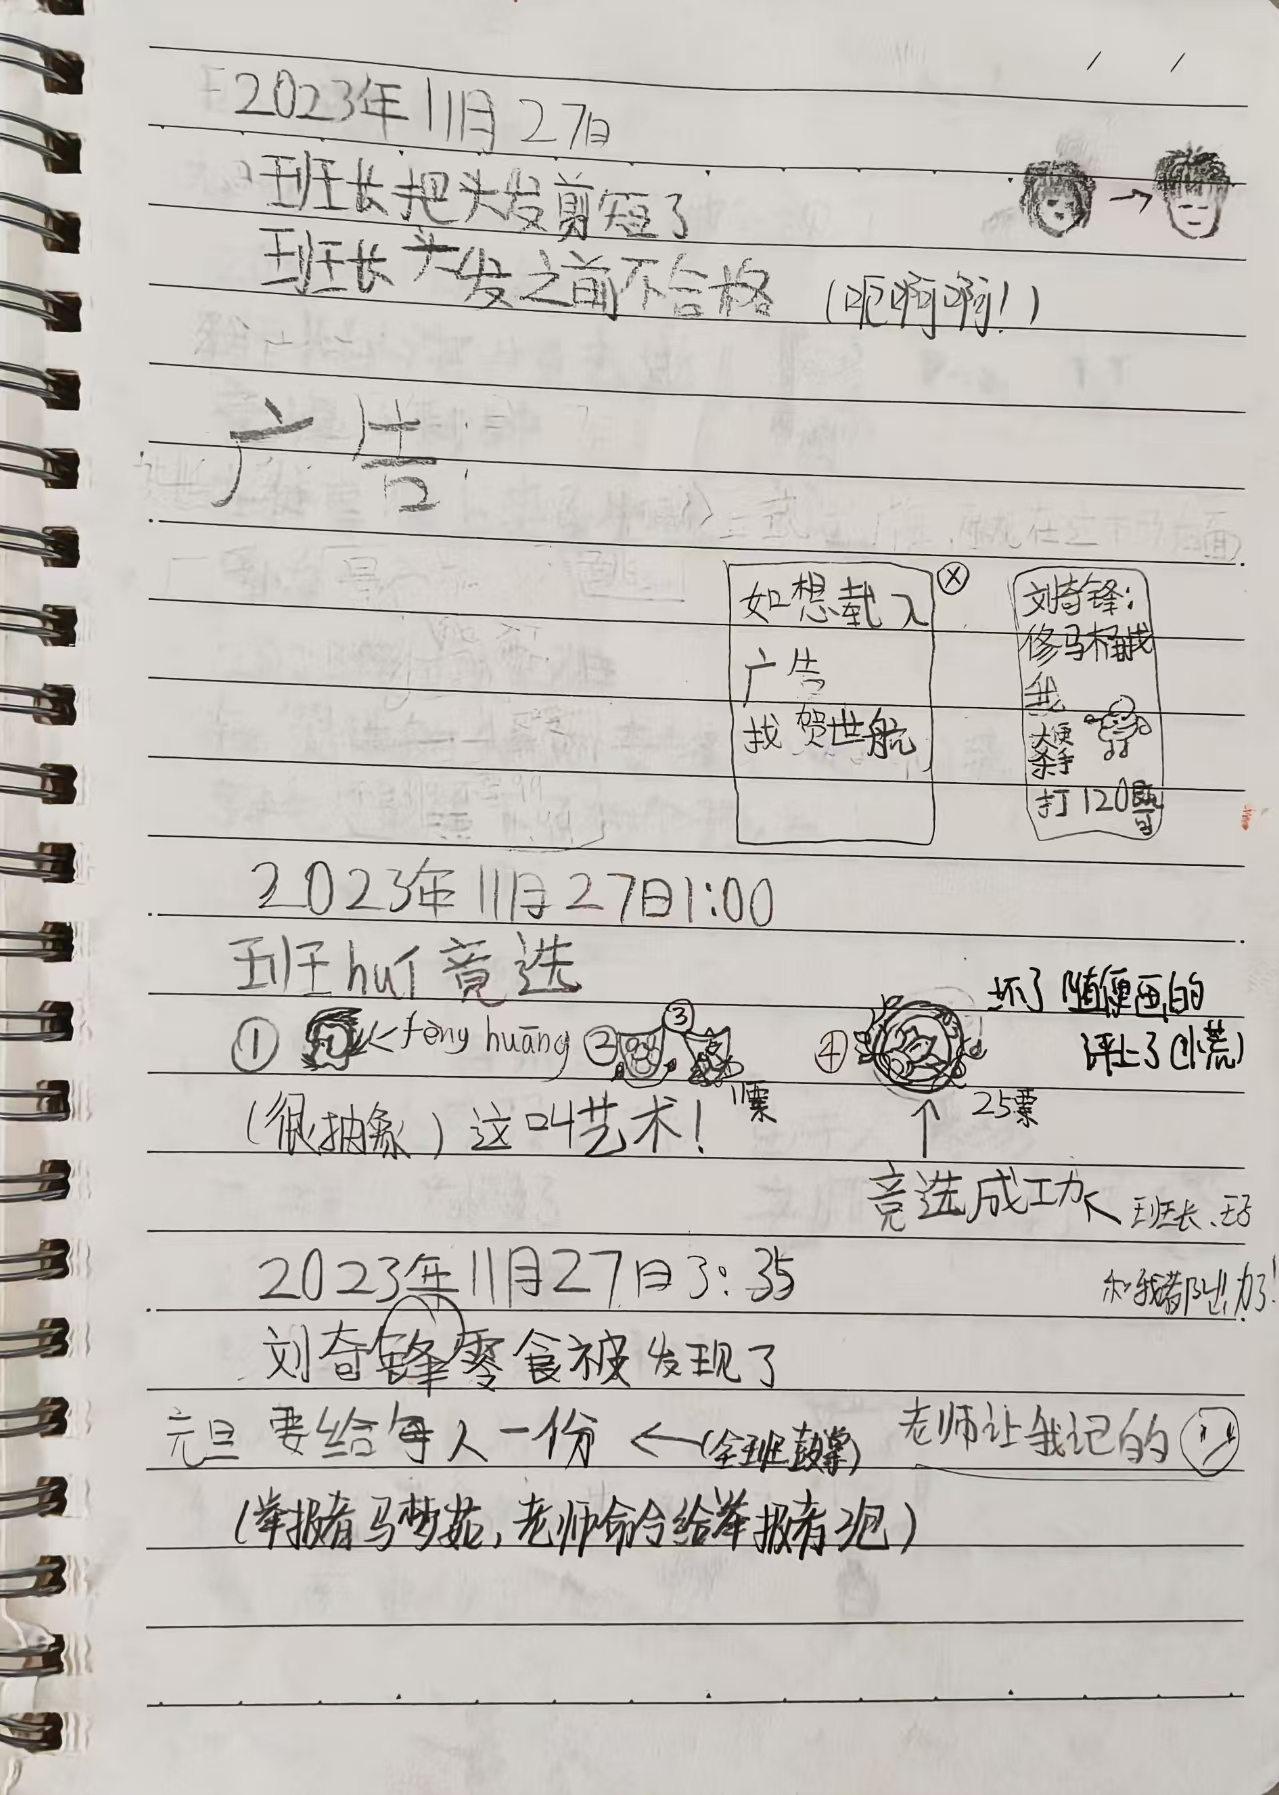 2023年11月27日
班长把头发剪短了
班长头发之前不合格 (呃啊啊!)
广告
如想载入
广告
找贺世航
X
刘奇锋:
修马桶找
我
大便
杀手
打120
2023年11月27日1:00
班huī竟选
① fèng huāng ② ③ ④
坏了随便画的
评上了(小荒)
11票
25票
(很抽象) 这叫艺术!
竟选成功
班长、
和我都出力了!
2023年11月27日3:35
刘奇锋零食被发现了
元旦要给每人一份 ← (全班鼓掌) 老师让我记的
(举报者马梦茹,老师命令给举报者3包)